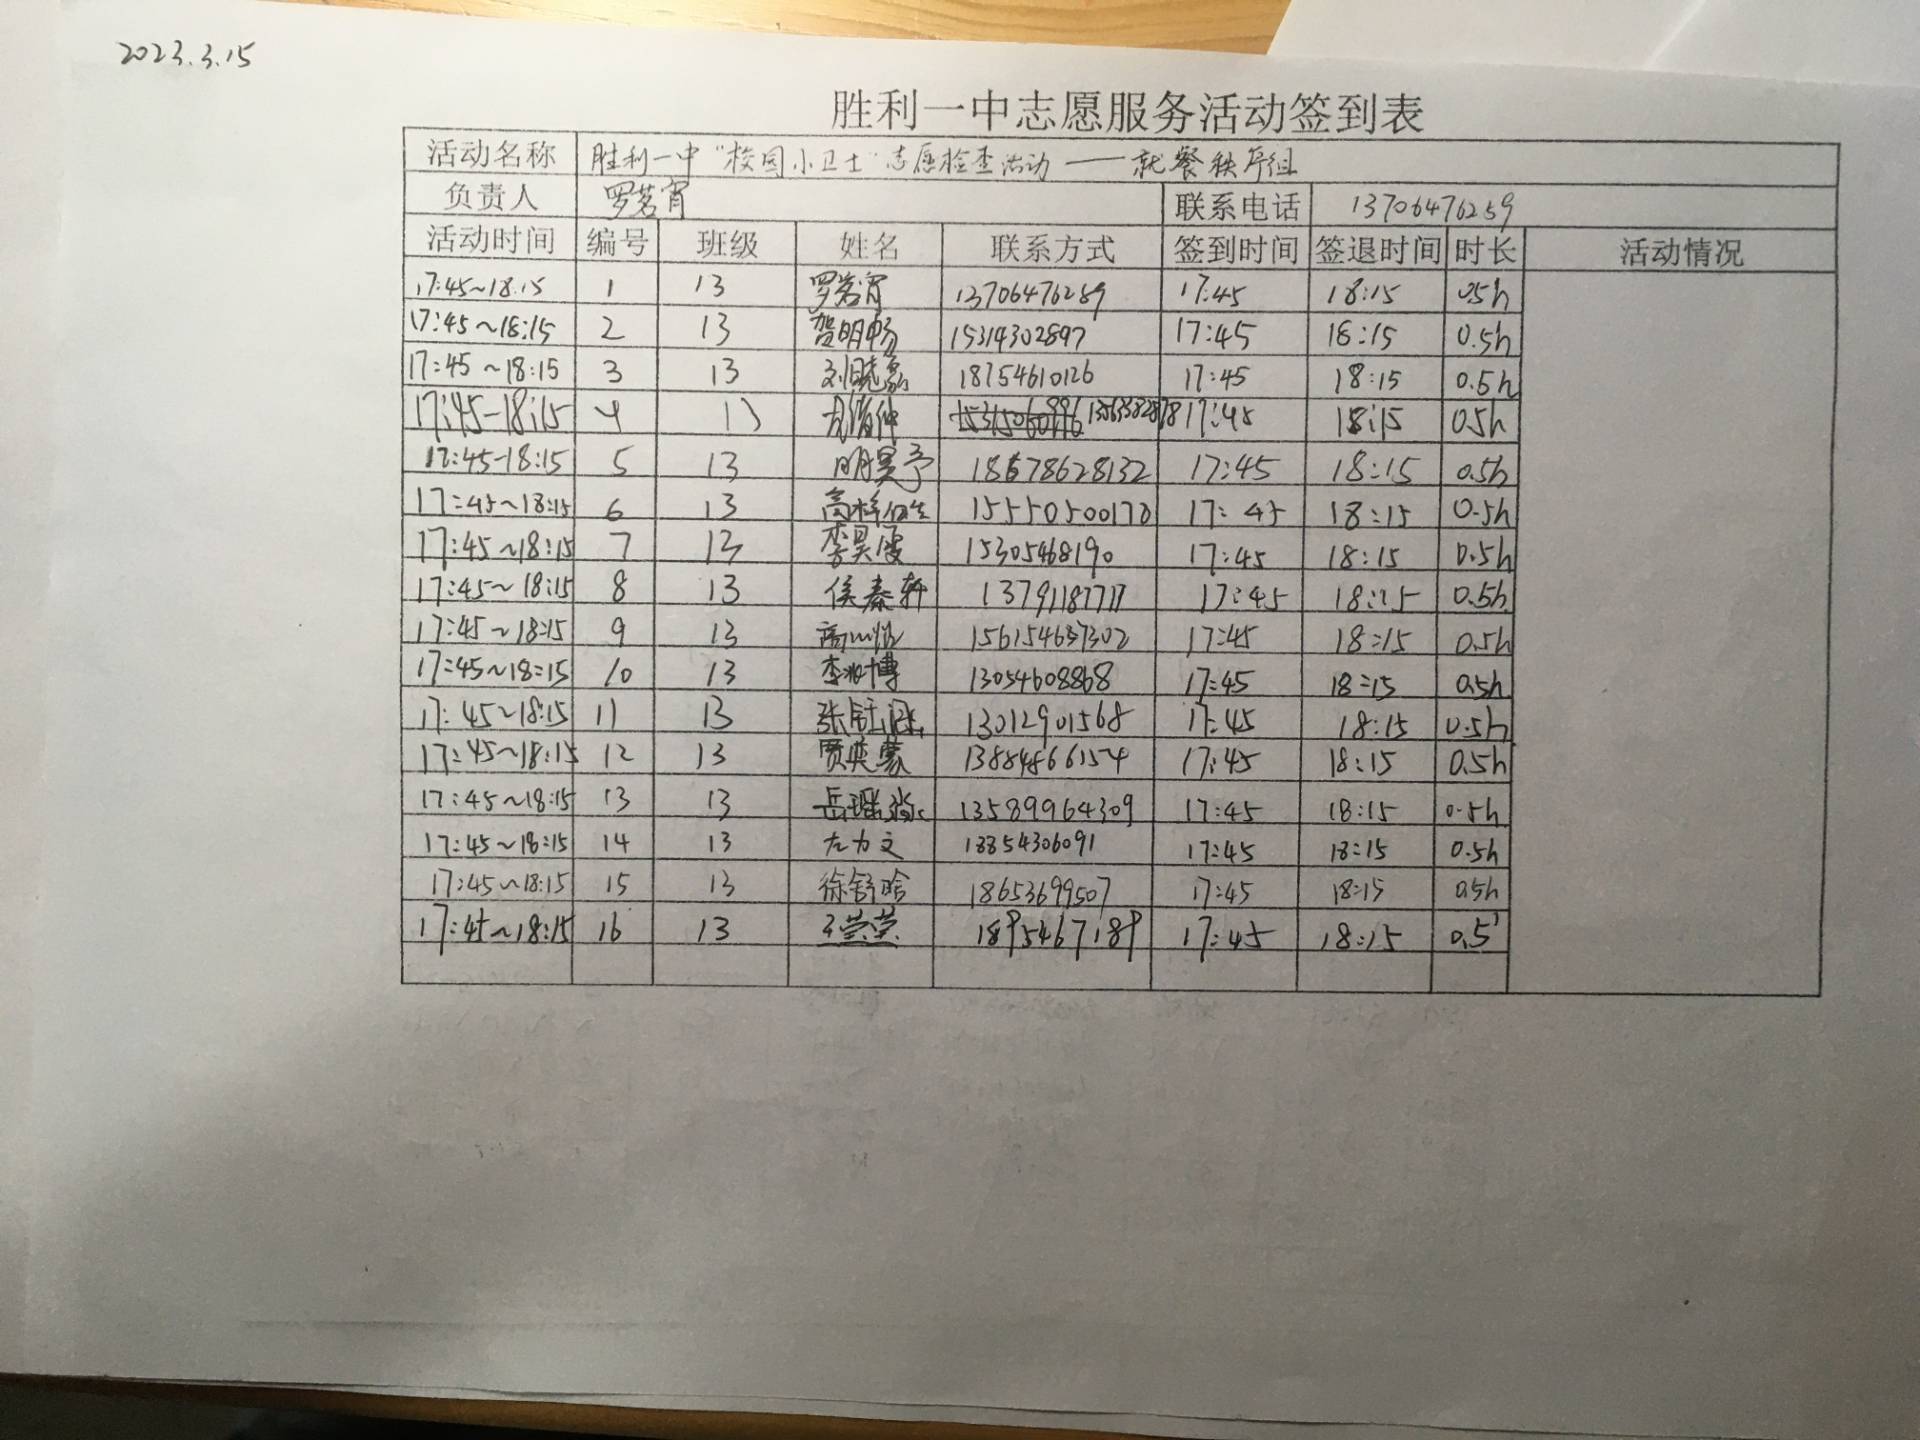 2023.3.15
胜利一中志愿服务活动签到表
活动名称 胜利一中“校园小卫士”志愿检查活动——就餐秩序组
负责人 罗茗宵 联系电话 13706476259
活动时间 编号 班级 姓名 联系方式 签到时间 签退时间 时长 活动情况
17:45~18:15 1 13 罗茗宵 13706476259 17:45 18:15 0.5h
17:45~18:15 2 13 贺明畅 15314302897 17:45 18:15 0.5h
17:45~18:15 3 13 刘晓磊 18754610126 17:45 18:15 0.5h
17:45-18:15 4 13 17:45 18:15 0.5h
17:45-18:15 5 13 明昊予 18678628132 17:45 18:15 0.5h
17:45~18:15 6 13 15550500170 17:45 18:15 0.5h
17:45~18:15 7 13 15305468190 17:45 18:15 0.5h
17:45~18:15 8 13 侯秦轩 13791187717 17:45 18:15 0.5h
17:45~18:15 9 13 17:45 18:15 0.5h
17:45~18:15 10 13 李兆博 13054608868 17:45 18:15 0.5h
17:45~18:15 11 13 13012901568 17:45 18:15 0.5h
17:45~18:15 12 13 贾奕蒙 17:45 18:15 0.5h
17:45~18:15 13 13 13589964309 17:45 18:15 0.5h
17:45~18:15 14 13 左力文 18854306091 17:45 18:15 0.5h
17:45~18:15 15 13 徐舒晗 18653699507 17:45 18:15 0.5h
17:45~18:15 16 13 王莹莹 1895467189 17:45 18:15 0.5